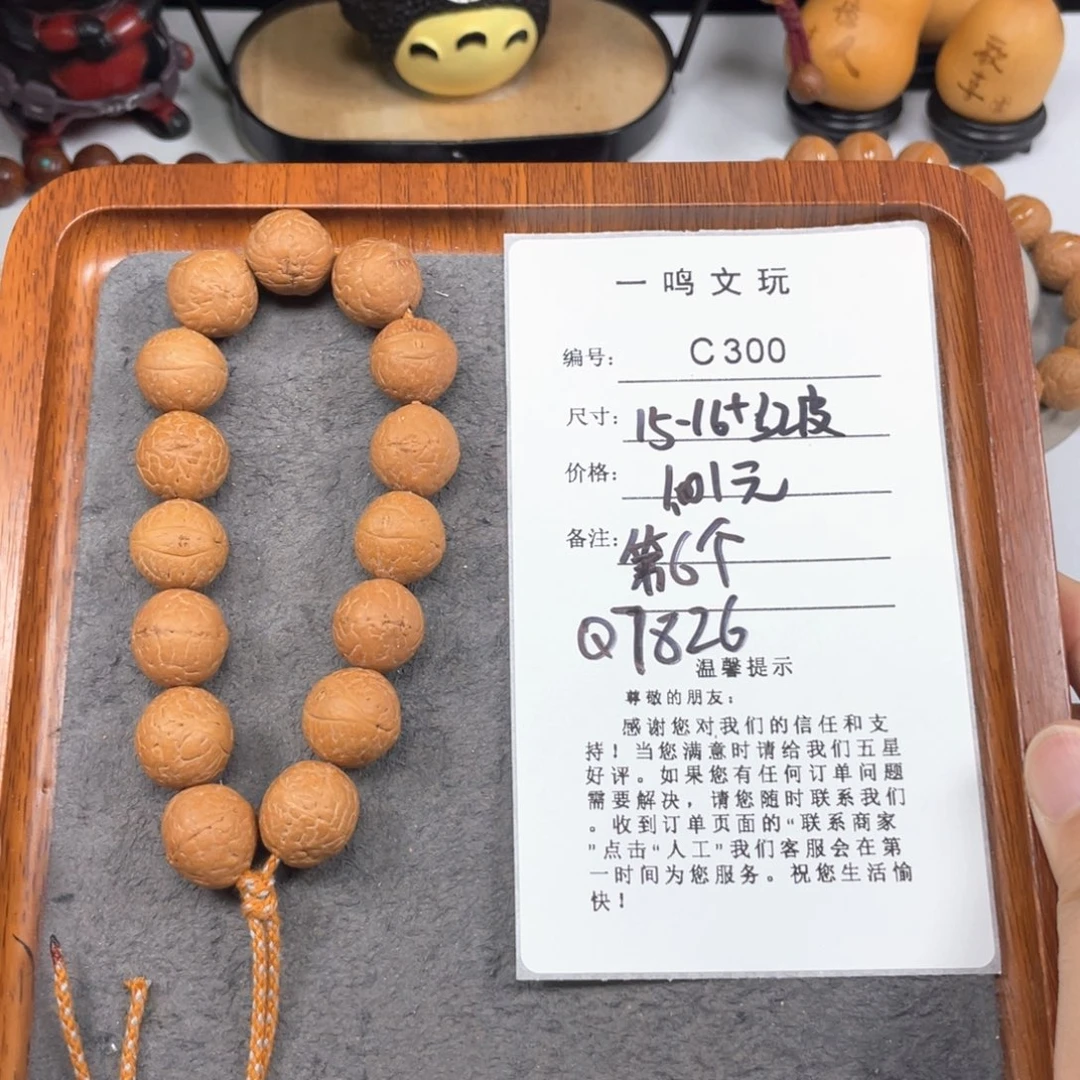 一鸣文玩
编号： C300
尺寸：15-16+红皮
价格：1001元
备注：第6个
Q7826
温馨提示
尊敬的朋友：
感谢您对我们的信任和支
持！当您满意时请给我们五星
好评。如果您有任何订单问题
需要解决，请您随时联系我们
。收到订单页面的“联系商家
”点击“人工”我们客服会在第
一时间为您服务。祝您生活愉
快！